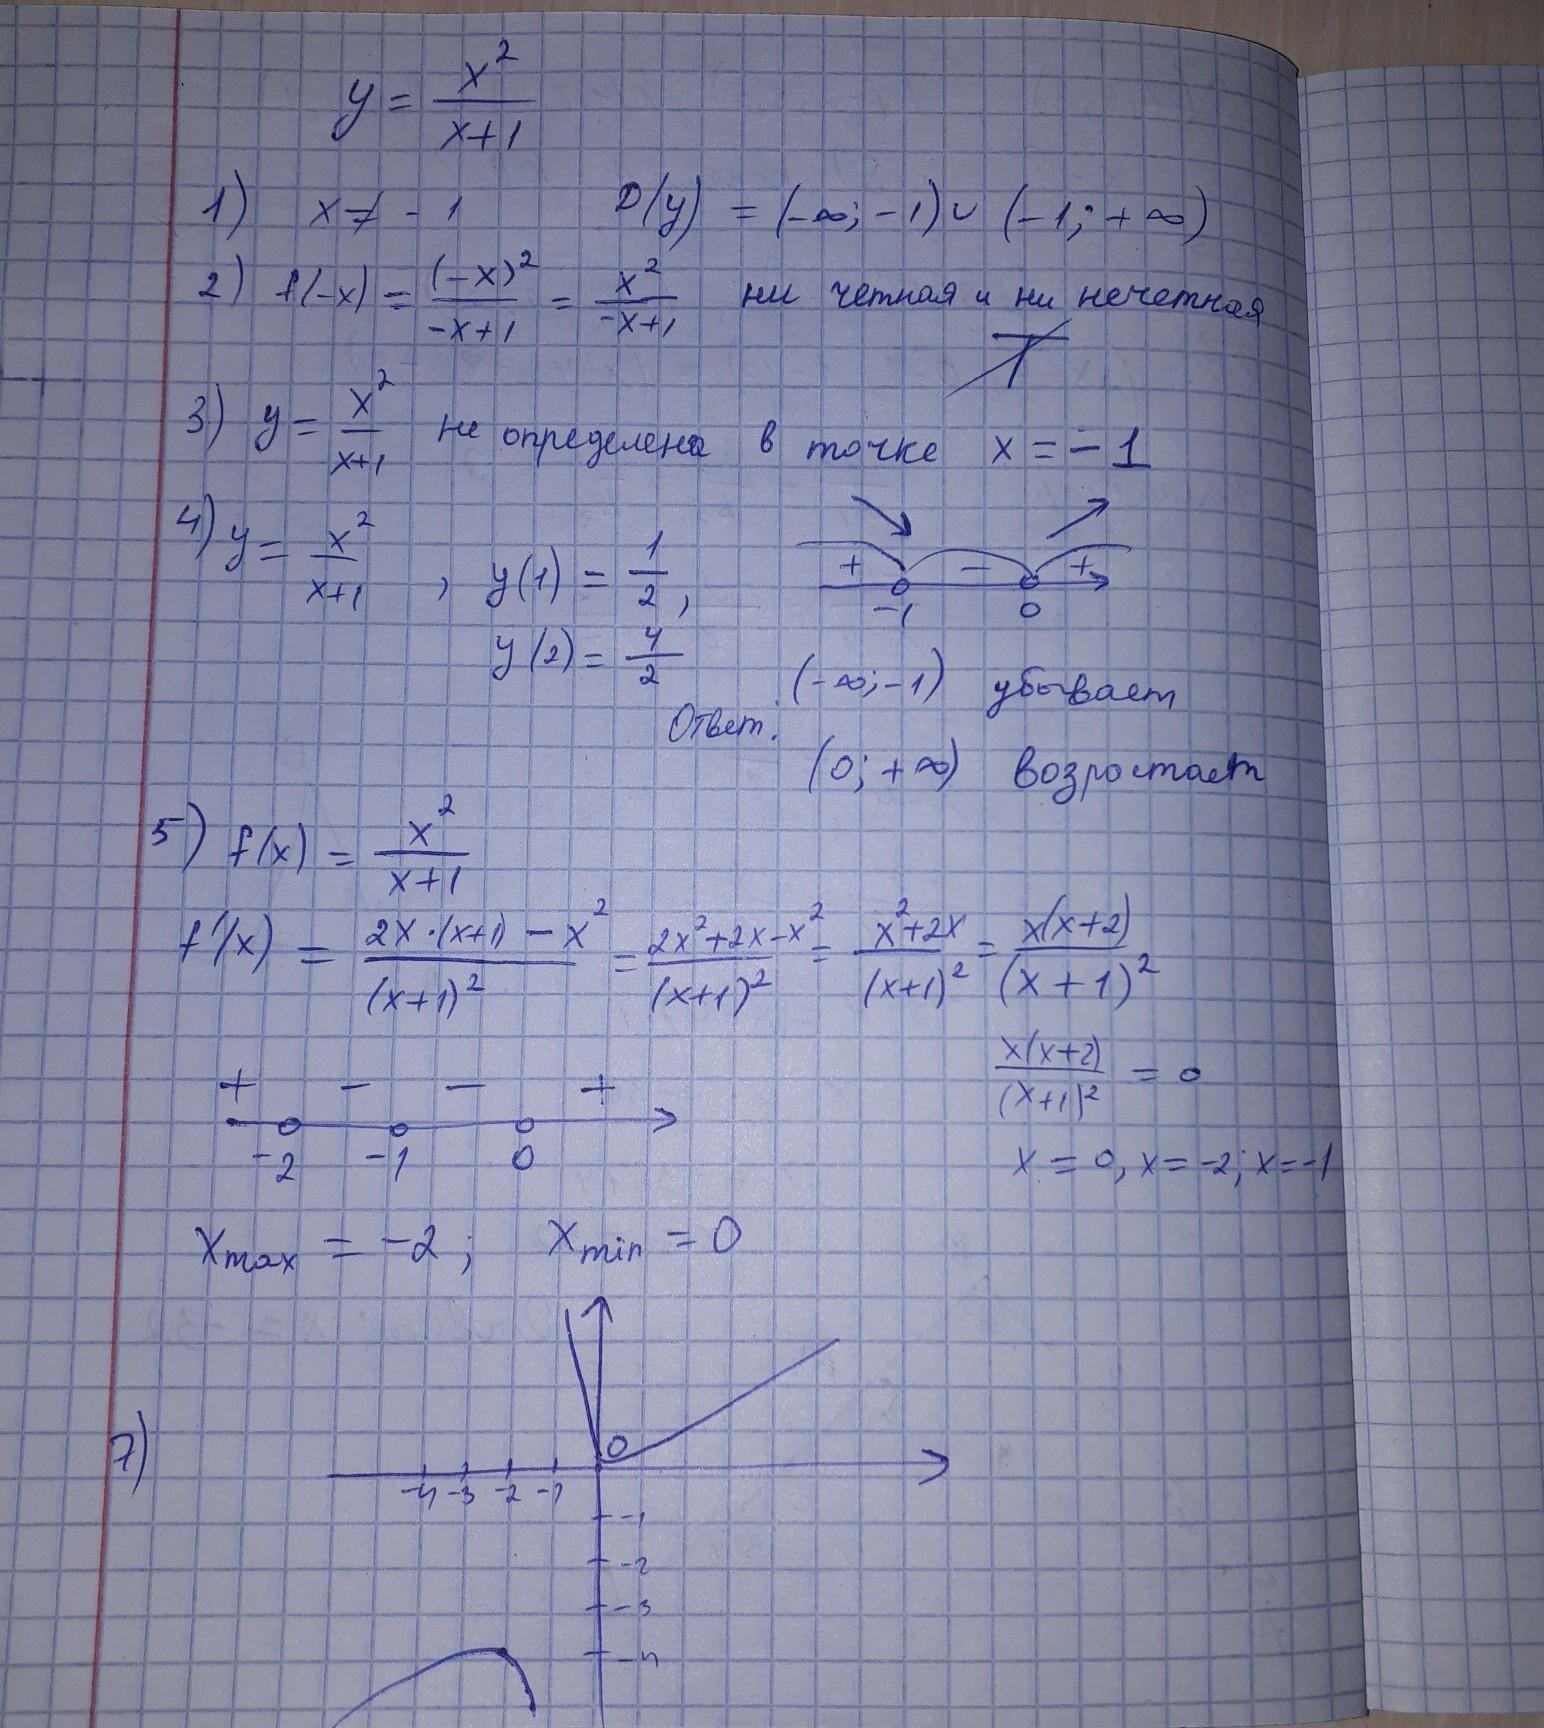 y = x²/(x+1)
1) x ≠ -1 D(y) = (-∞; -1) ∪ (-1; +∞)
2) f(-x) = (-x)²/(-x+1) = x²/(-x+1) ни четная и ни нечетная
T
3) y = x²/(x+1) не определена в точке x = -1
4) y = x²/(x+1), y(1) = 1/2,
+ - +
-1 0
y(2) = 4/2
(-∞; -1) убывает
Ответ:
(0; +∞) возростает
5) f(x) = x²/(x+1)
f'(x) = (2x·(x+1) - x²)/(x+1)² = (2x²+2x-x²)/(x+1)² = (x²+2x)/(x+1)² = x(x+2)/(x+1)²
x(x+2)/(x+1)² = 0
+ - - +
-2 -1 0
x = 0, x = -2; x = -1
x max = -2; x min = 0
7)
0
-4 -3 -2 -1
-1
-2
-3
-4